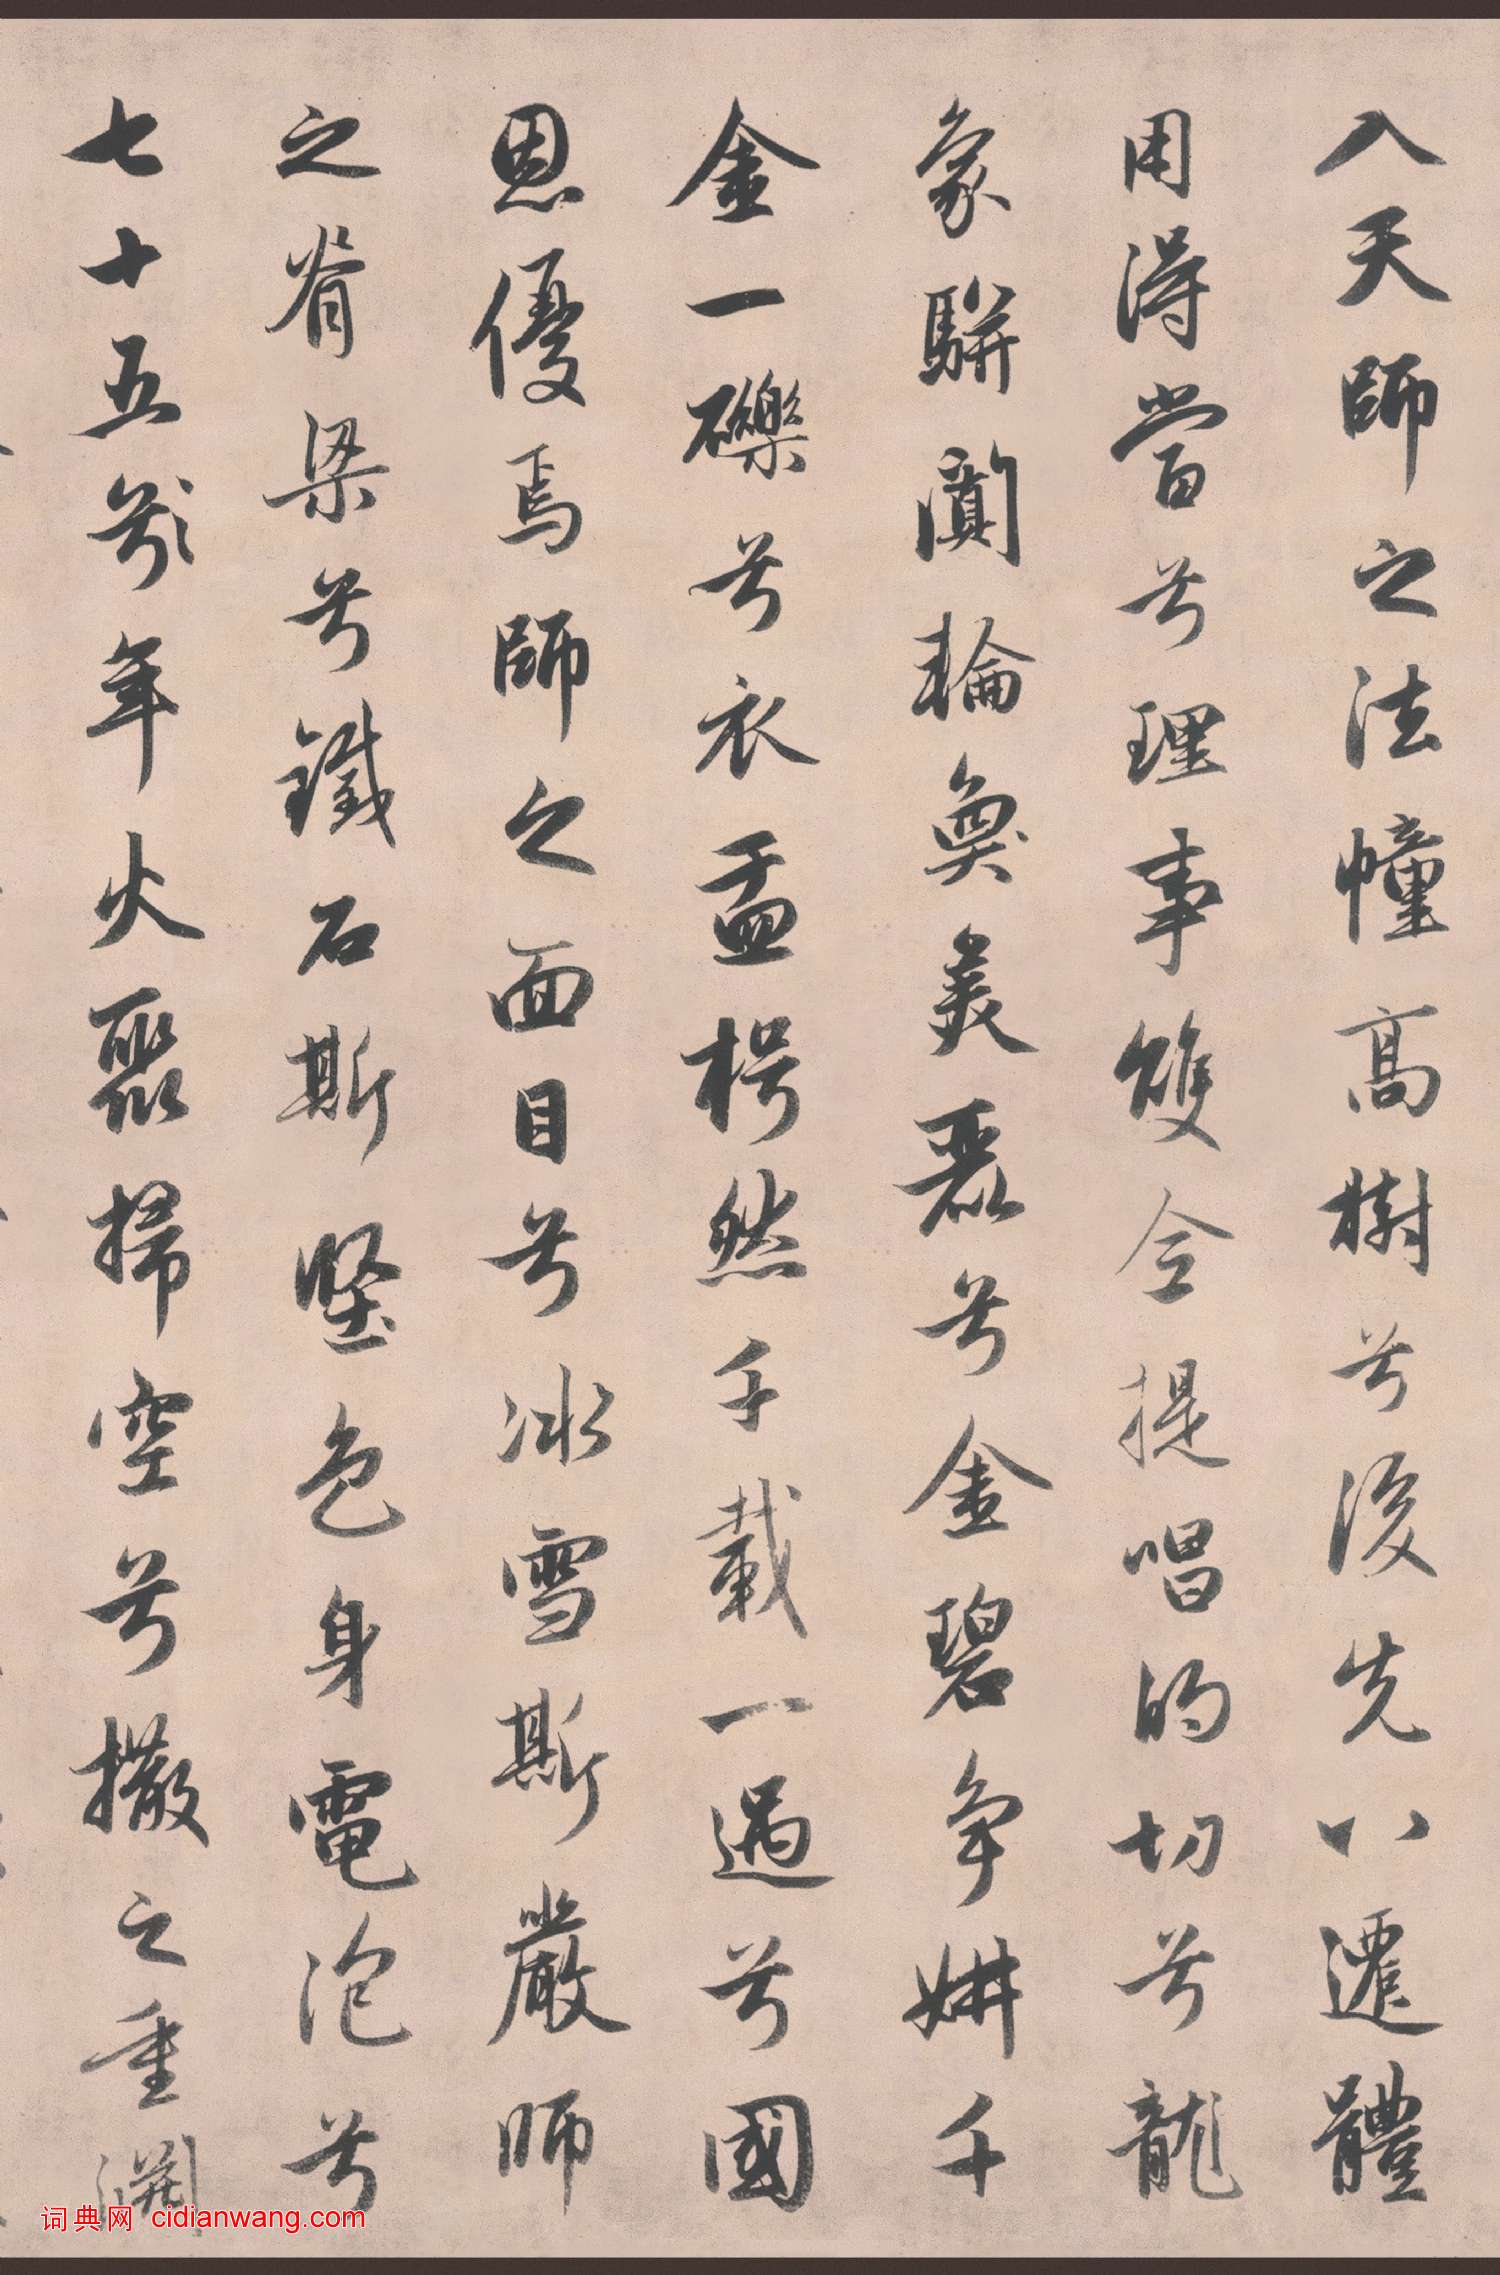 入天師之法幢高樹兮後先以遷體
用得當兮理事雙令提唱的切兮龍
象駢闐輪奐美麗兮金碧爭妍千
金一礫兮衣盂枵然千載一遇兮國
恩優焉師之面目兮冰雪斯嚴師
之脊梁兮鐵石斯堅色身電泡兮
七十五於年火聚掃空兮撒之重淵
词典网 cidianwang.com